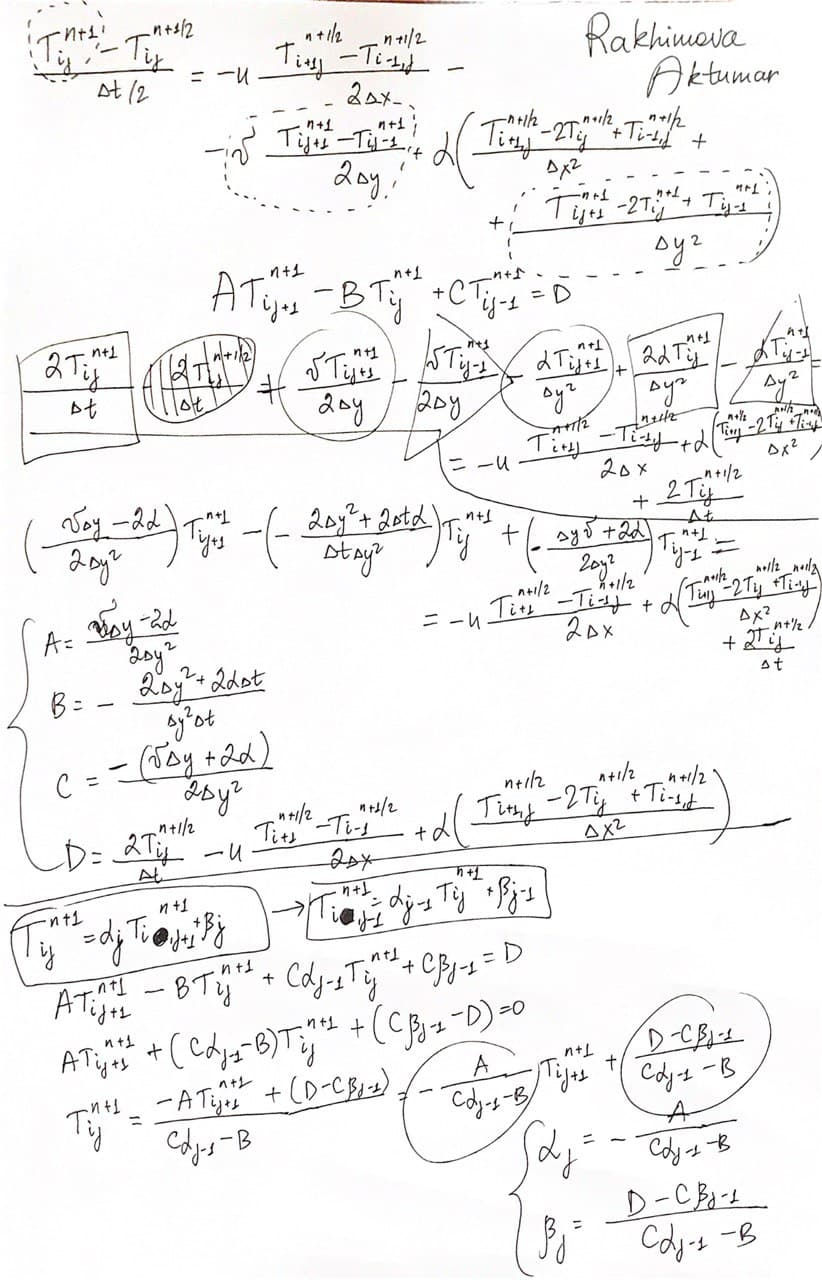 Rakhimova
Aktumar
(T_{ij}^{n+1} - T_{ij}^{n+1/2}) / (Δt/2) = -u (T_{i+1,j}^{n+1/2} - T_{i-1,j}^{n+1/2}) / (2Δx) -
- v (T_{ij+1}^{n+1} - T_{ij-1}^{n+1}) / (2Δy) + α( (T_{i+1,j}^{n+1/2} - 2T_{ij}^{n+1/2} + T_{i-1,j}^{n+1/2}) / Δx² +
+ (T_{ij+1}^{n+1} - 2T_{ij}^{n+1} + T_{ij-1}^{n+1}) / Δy² )
AT_{ij+1}^{n+1} - BT_{ij}^{n+1} + CT_{ij-1}^{n+1} = D
2T_{ij}^{n+1} / Δt - 2T_{ij}^{n+1/2} / Δt + vT_{ij+1}^{n+1} / (2Δy) - vT_{ij-1}^{n+1} / (2Δy) - αT_{ij+1}^{n+1} / Δy² + 2αT_{ij}^{n+1} / Δy² - αT_{ij-1}^{n+1} / Δy² =
= -u (T_{i+1,j}^{n+1/2} - T_{i-1,j}^{n+1/2}) / (2Δx) + α( (T_{i+1,j}^{n+1/2} - 2T_{ij}^{n+1/2} + T_{i-1,j}^{n+1/2}) / Δx² )
+ 2T_{ij}^{n+1/2} / Δt
( (vΔy - 2α) / (2Δy²) ) T_{ij+1}^{n+1} - ( - (2Δy² + 2Δtα) / (ΔtΔy²) ) T_{ij}^{n+1} + ( - (Δyv + 2α) / (2Δy²) ) T_{ij-1}^{n+1} =
= -u (T_{i+1}^{n+1/2} - T_{i-1,j}^{n+1/2}) / (2Δx) + α( (T_{i+1,j}^{n+1/2} - 2T_{ij}^{n+1/2} + T_{i-1,j}^{n+1/2}) / Δx² )
+ 2T_{ij}^{n+1/2} / Δt
A = (vΔy - 2α) / (2Δy²)
B = - (2Δy² + 2αΔt) / (Δy²Δt)
C = - (vΔy + 2α) / (2Δy²)
D = 2T_{ij}^{n+1/2} / Δt - u (T_{i+1}^{n+1/2} - T_{i-1}^{n+1/2}) / (2Δx) + α( (T_{i+1,j}^{n+1/2} - 2T_{ij}^{n+1/2} + T_{i-1,j}^{n+1/2}) / Δx² )
T_{ij}^{n+1} = α_j T_{i,j+1}^{n+1} + β_j → T_{i,j-1}^{n+1} = α_{j-1} T_{ij}^{n+1} + β_{j-1}
AT_{ij+1}^{n+1} - BT_{ij}^{n+1} + Cα_{j-1}T_{ij}^{n+1} + Cβ_{j-1} = D
AT_{ij+1}^{n+1} + (Cα_{j-1} - B)T_{ij}^{n+1} + (Cβ_{j-1} - D) = 0
T_{ij}^{n+1} = (-AT_{ij+1}^{n+1} + (D - Cβ_{j-1})) / (Cα_{j-1} - B) = - A / (Cα_{j-1} - B) T_{ij+1}^{n+1} + (D - Cβ_{j-1}) / (Cα_{j-1} - B)
α_j = - A / (Cα_{j-1} - B)
β_j = (D - Cβ_{j-1}) / (Cα_{j-1} - B)